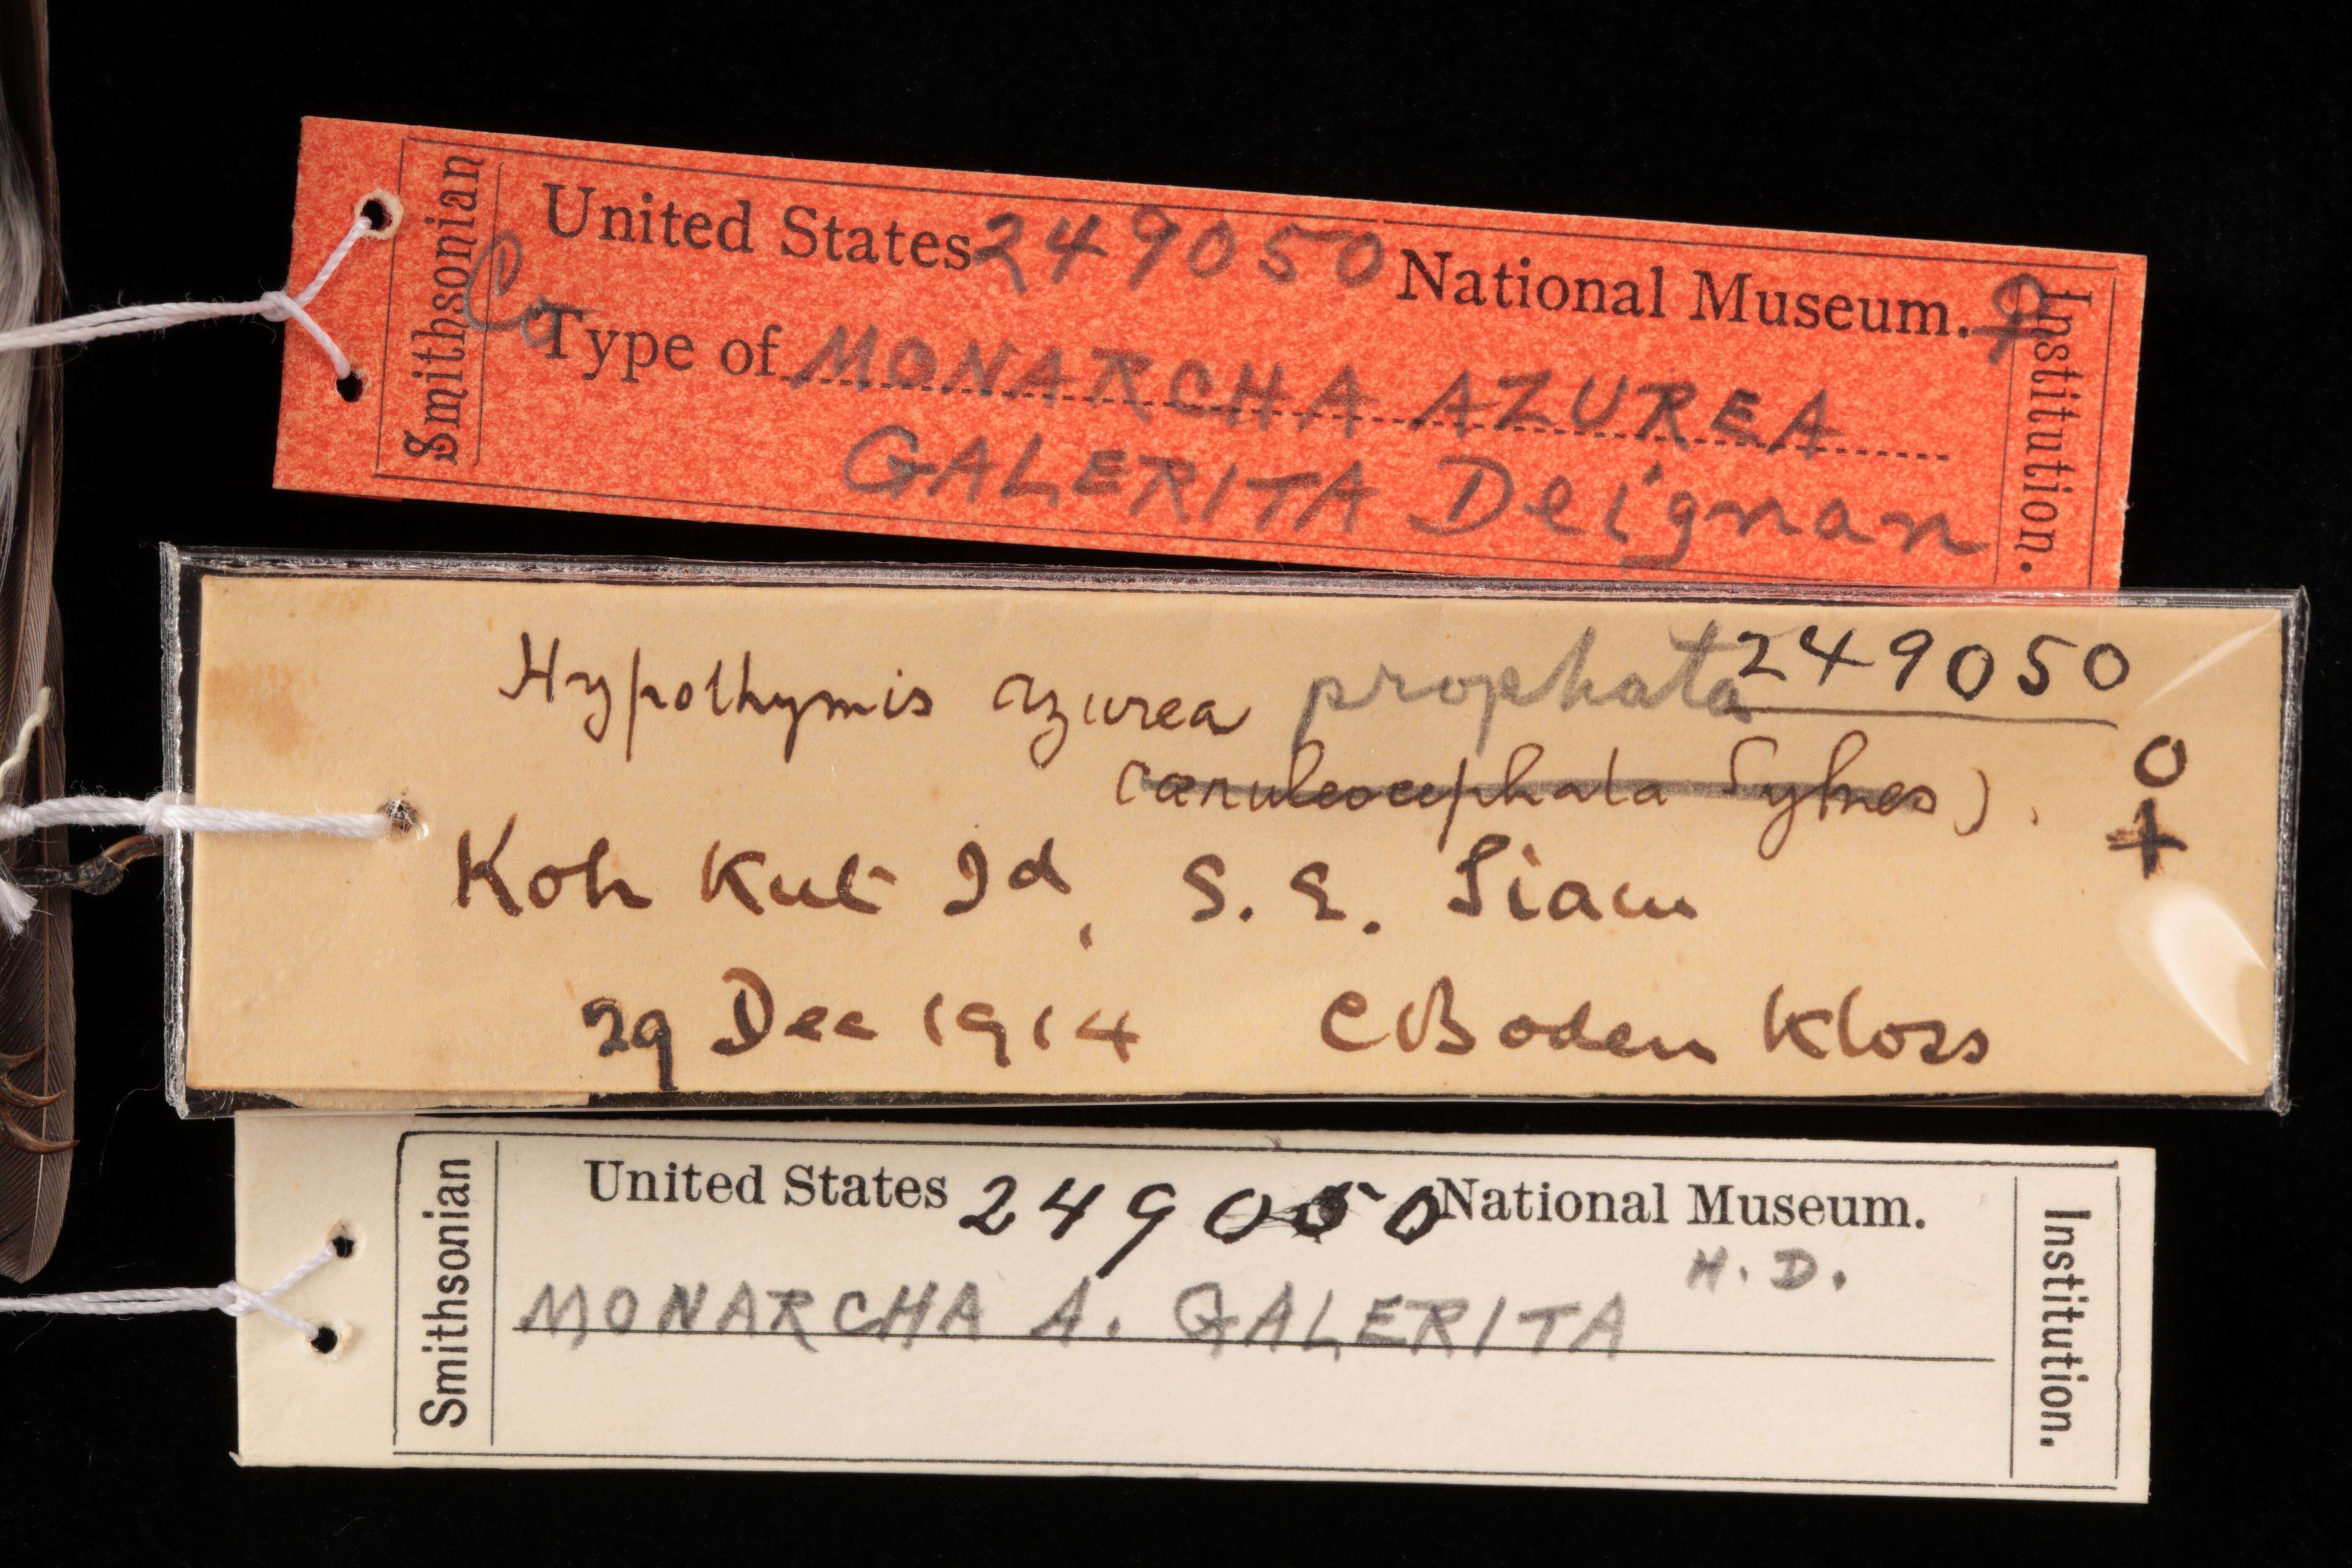 Smithsonian
United States 249050 National Museum. ♀
CoType of MONARCHA AZUREA
GALERITA Deignan
Institution.
249050
Hypothymis azurea prophata
(cæruleocephala Sykes).
♀
Koh Kut Id, S. E. Siam
29 Dec 1914 C Boden Kloss
Smithsonian
United States 249050 National Museum.
H. D.
MONARCHA A. GALERITA
Institution.